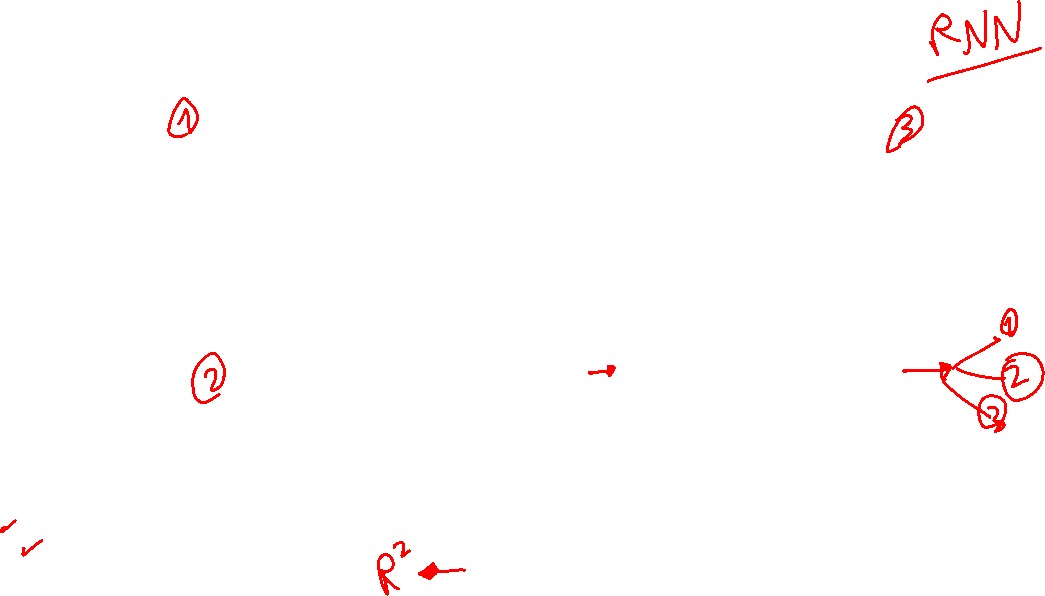 RNN
① ③
①
② ②
③
R²